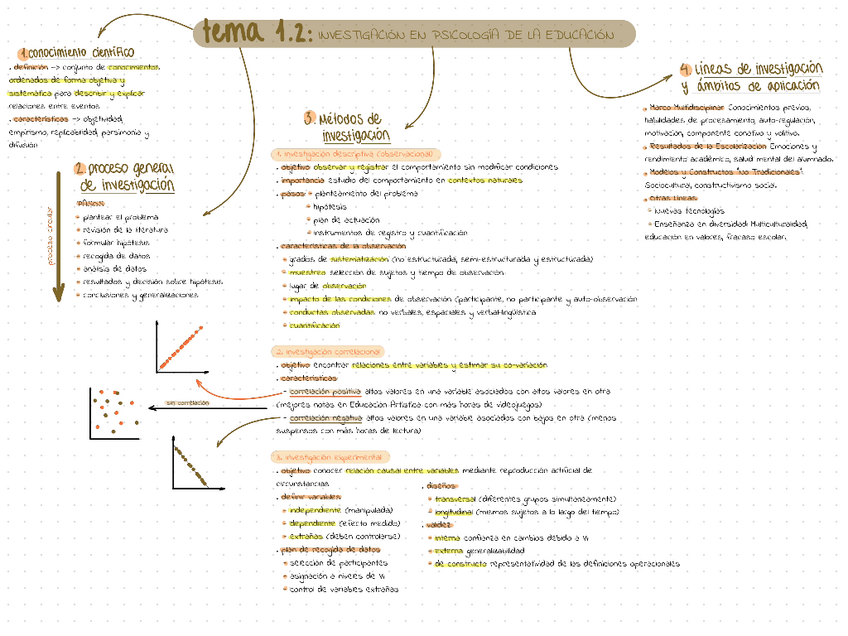 tema 1.2: INVESTIGACIÓN EN PSICOLOGÍA DE LA EDUCACIÓN
1. conocimiento científico
. definición -> conjunto de conocimientos
ordenados de forma objetiva y
sistemática para describir y explicar
relaciones entre eventos.
. características -> objetividad,
empirismo, replicabilidad, parsimonia y
difusión
2. proceso general
de investigación
proceso circular
pasos:
plantear el problema
revisión de la literatura
formular hipótesis
recogida de datos
análisis de datos
resultados y decisión sobre hipótesis
conclusiones y generalizaciones
3. Métodos de
investigación
1. investigación descriptiva (observacional)
. objetivo observar y registrar el comportamiento sin modificar condiciones
. importancia estudio del comportamiento en contextos naturales
. pasos planteamiento del problema
hipótesis
plan de actuación
instrumentos de registro y cuantificación
. características de la observación
grados de sistematización (no estructurada, semi-estructurada y estructurada)
muestreo selección de sujetos y tiempo de observación
lugar de observación
impacto de las condiciones de observación (participante, no participante y auto-observación
conductas observadas no verbales, espaciales y verbal-lingüística
cuantificación
2. investigación correlacional
. objetivo encontrar relaciones entre variables y estimar su co-variación
. características
- correlación positiva altos valores en una variable asociados con altos valores en otra
(mejores notas en Educación Artística con más horas de videojuegos)
sin correlación
- correlación negativa altos valores en una variable asociados con bajos en otra (menos
suspensos con más horas de lectura)
3. investigación experimental
. objetivo conocer relación causal entre variables mediante reproducción artificial de
circunstancias
. definir variables
independiente (manipulada)
dependiente (efecto medido)
extrañas (deben controlarse)
. plan de recogida de datos
selección de participantes
asignación a niveles de VI
control de variables extrañas
. diseños
transversal (diferentes grupos simultáneamente)
longitudinal (mismos sujetos a lo largo del tiempo)
. validez
interna confianza en cambios debido a VI
externa generalizabilidad
de constructo representatividad de las definiciones operacionales
4. Líneas de investigación
y ámbitos de aplicación
. Marco Multidisciplinar Conocimientos previos,
habilidades de procesamiento, auto-regulación,
motivación, componente conativo y volitivo.
. Resultados de la Escolarización Emociones y
rendimiento académico, salud mental del alumnado.
. Modelos y Constructos "No Tradicionales"
Sociocultural, constructivismo social.
. Otras Líneas
Nuevas tecnologías
Enseñanza en diversidad: Multiculturalidad,
educación en valores, fracaso escolar.